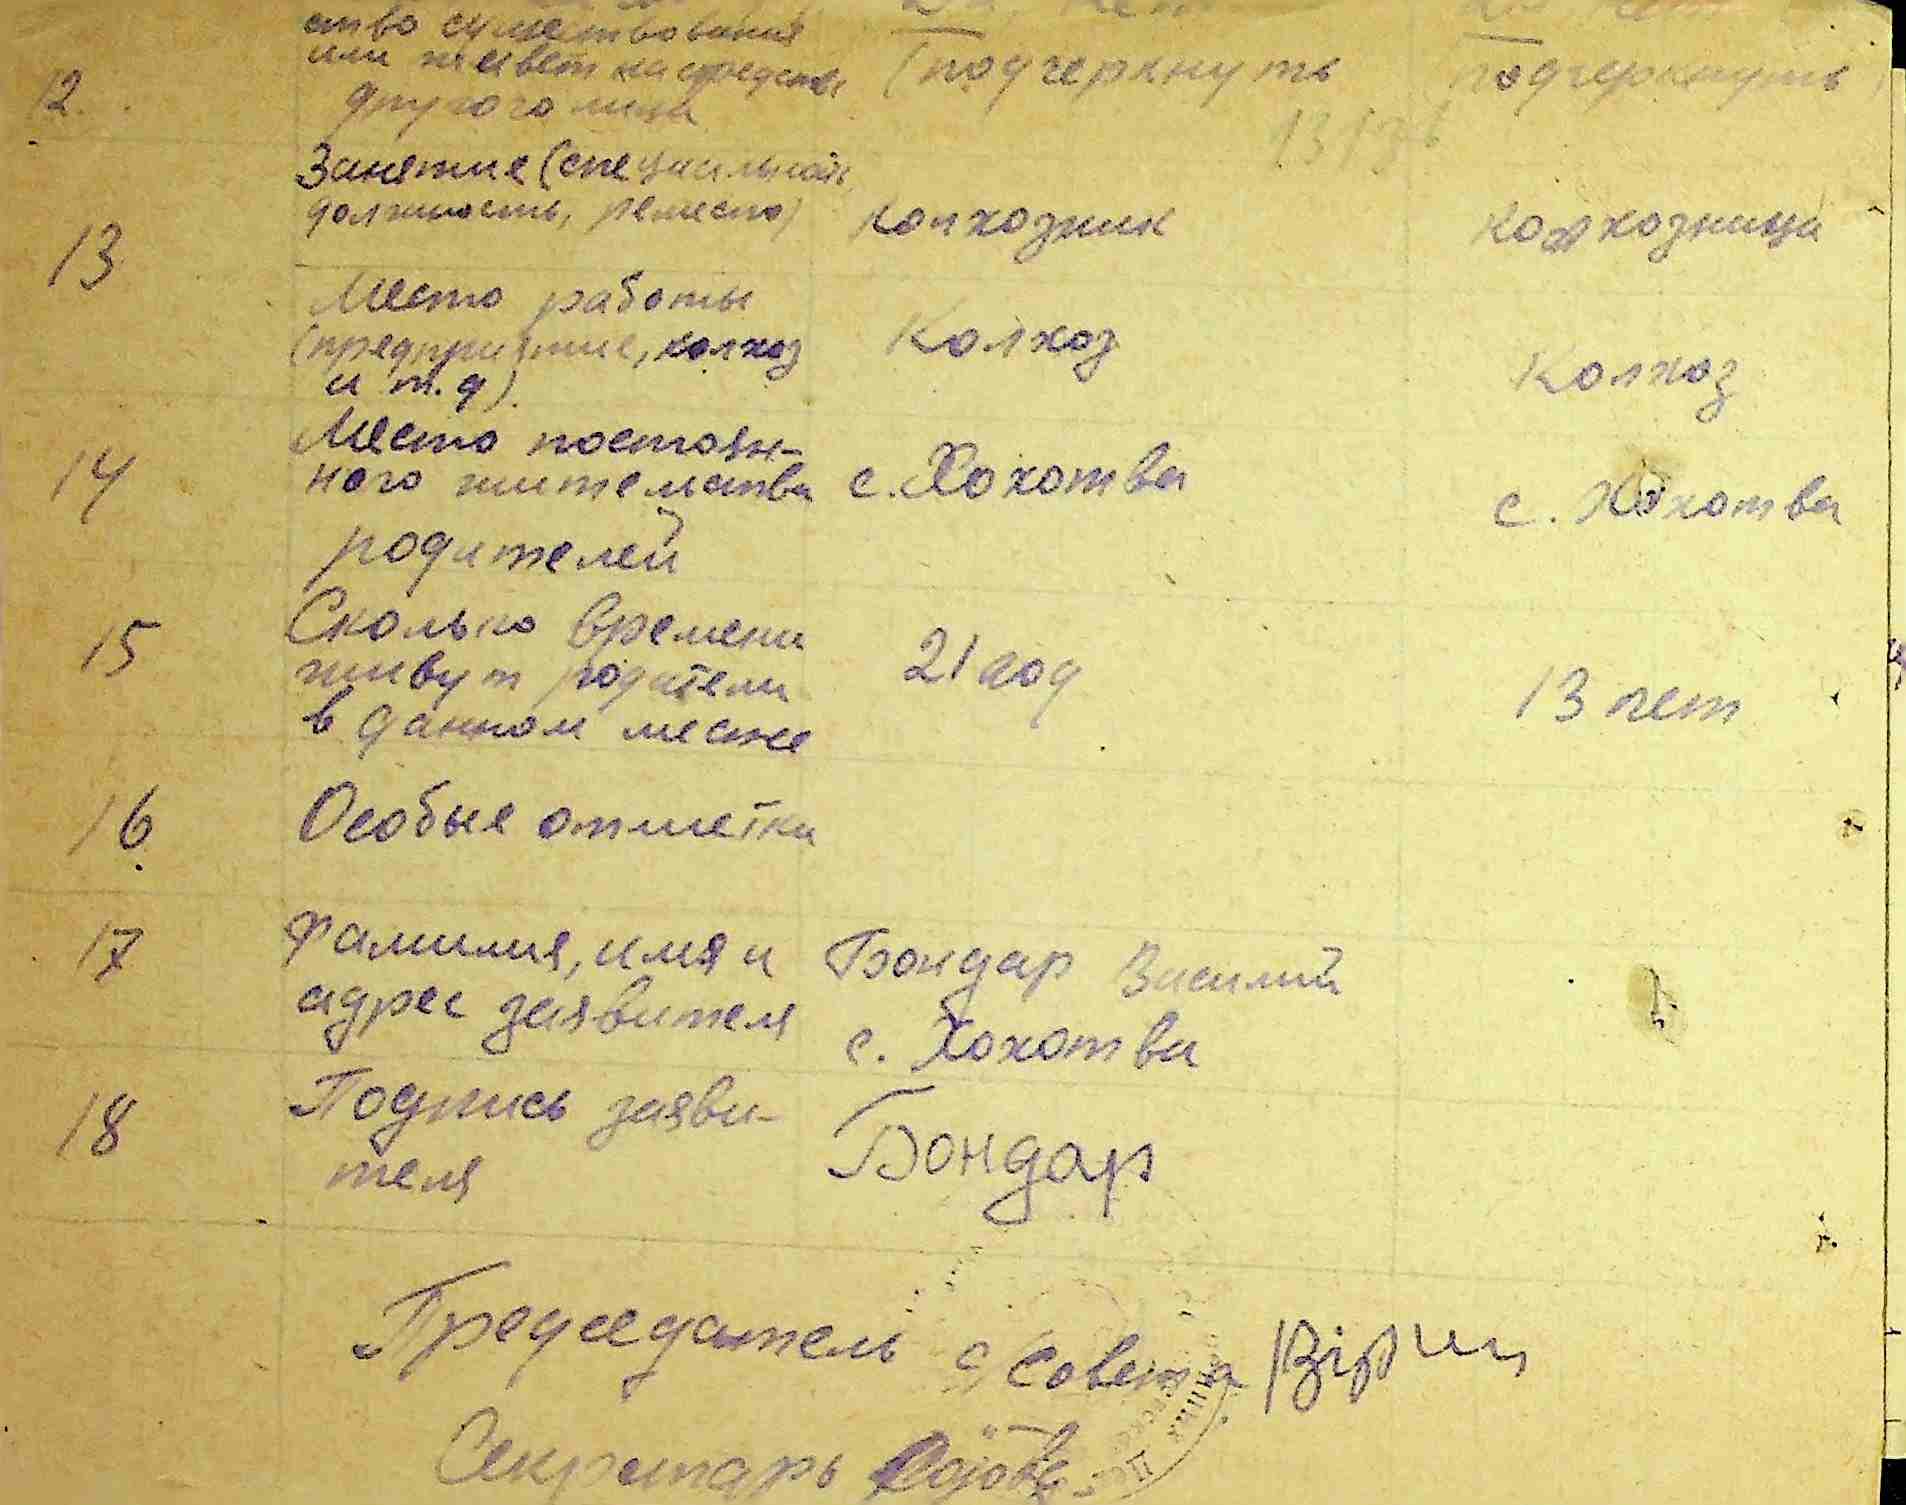 ство существования
или живет на средства (подчеркнуть подчеркнуть
12. другого лица
Занятие (специальность,
должность, ремесло) колхозник колхозница
13
Место работы
(предприятие, колхоз Колхоз Колхоз
и т.д).
Место постоян-
14 ного жительства с. Хохотва с. Хохотва
родителей
Сколько времени
15 живут родители 21 год 13 лет
в данном месте
16 Особые отметки
17 Фамилия, имя и Бондар Василий
адрес заявителя с. Хохотва
18 Подпись заяви- Бондар
теля
Председатель с/совета
Секретарь